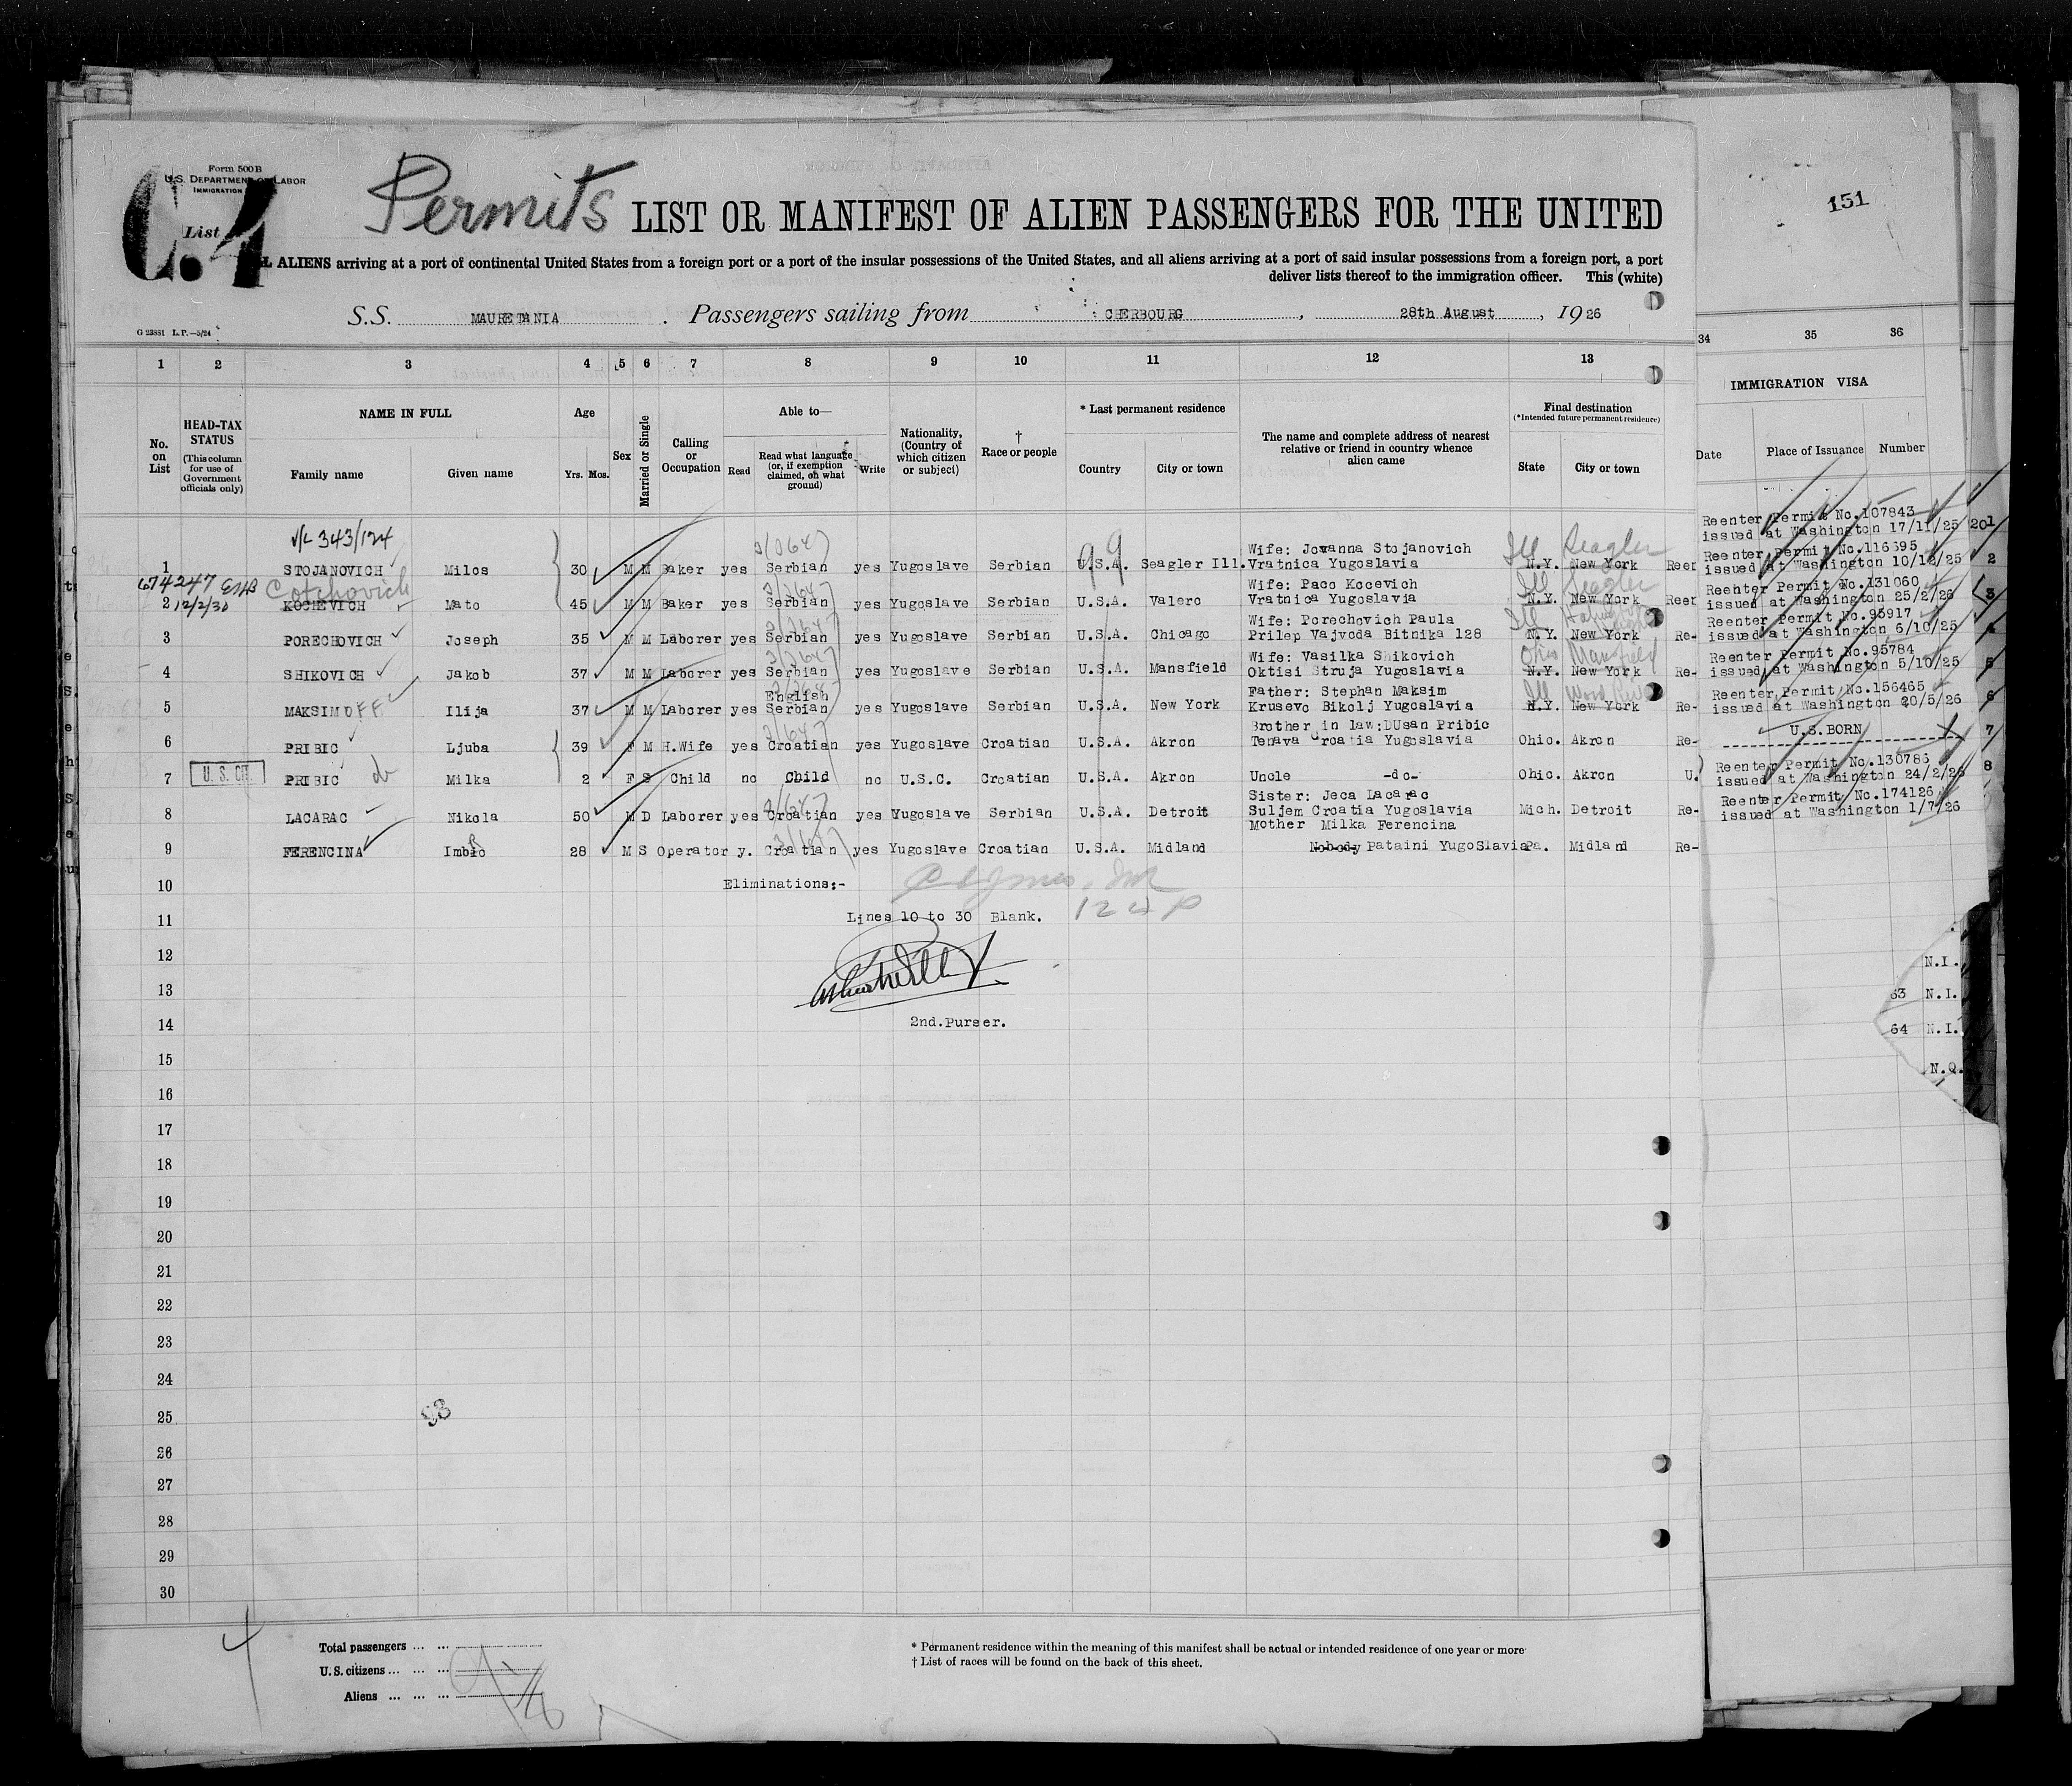 Form 500 B
U.S. DEPARTMENT OF LABOR
IMMIGRATION
List C.4
Permits LIST OR MANIFEST OF ALIEN PASSENGERS FOR THE UNITED
ALIENS arriving at a port of continental United States from a foreign port or a port of the insular possessions of the United States, and all aliens arriving at a port of said insular possessions from a foreign port, a port
deliver lists thereof to the immigration officer. This (white)
151
S.S. MAURETANIA . Passengers sailing from CHERBOURG , 28th August , 1926
G 23851 L.P.—5/24
1 2 3 4 5 6 7 8 9 10 11 12 13 34 35 36
No. on List
HEAD-TAX STATUS (This column for use of Government officials only)
NAME IN FULL Family name Given name
Age Yrs. Mos.
Sex
Married or Single
Calling or Occupation
Able to— Read Read what language (or, if exemption claimed, on what ground) Write
Nationality, (Country of which citizen or subject)
† Race or people
* Last permanent residence Country City or town
The name and complete address of nearest relative or friend in country whence alien came
Final destination (*Intended future permanent residence) State City or town
IMMIGRATION VISA Date Place of Issuance Number
V/L 343/124
Wife: Jovanna Stojanovich Ill Seagler
1 STOJANOVICH Milos 30 M M Baker yes Serbian yes Yugoslave Serbian U.S.A. Seagler Ill. Vratnica Yugoslavia N.Y. New York Reer
674247 Cotchovich Wife: Paco Kocevich Ill Seagler
2 12/2/30 KOCHEVICH Mato 45 M M Baker yes Serbian yes Yugoslave Serbian U.S.A. Valero Vratnica Yugoslavia N.Y. New York Reer
Wife: Porechovich Paula Ill
3 PORECHOVICH Joseph 35 M M Laborer yes Serbian yes Yugoslave Serbian U.S.A. Chicago Prilep Vajvoda Bitnika 128 N.Y. New York Re-
Wife: Vasilka Shikovich Ohio Mansfield
4 SHIKOVICH Jakob 37 M M Laborer yes Serbian yes Yugoslave Serbian U.S.A. Mansfield Oktisi Struja Yugoslavia N.Y. New York Re-
English Father: Stephan Maksim Ill Wood
5 MAKSIMOFF Ilija 37 M M Laborer yes Serbian yes Yugoslave Serbian U.S.A. New York Krusevo Bikolj Yugoslavia N.Y. New York Re-
Brother in law:DUsan Pribic
6 PRIBIC Ljuba 39 F M H.Wife yes Croatian yes Yugoslave Croatian U.S.A. Akron Tenava Croatia Yugoslavia Ohio. Akron Re-
7 U.S. CIT. PRIBIC Milka 2 F S Child no Child no U.S.C. Croatian U.S.A. Akron Uncle -do- Ohio. Akron U.
Sister: Jeca Lacarac
8 LACARAC Nikola 50 M D Laborer yes Croatian yes Yugoslave Serbian U.S.A. Detroit Suljem Croatia Yugoslavia Mich. Detroit Re-
Mother Milka Ferencina
9 FERENCINA Imbro 28 M S Operator y. Croatian yes Yugoslave Croatian U.S.A. Midland Nobody Pataini YugoSlavia Pa. Midland Re-
Reenter Permit No.107843
issued at Washington 17/11/25 201
Reenter Permit No.116395
issued at Washington 10/12/25 2
Reenter Permit No.131060
issued at Washington 25/2/26 3
Reenter Permit No.95917
issued at Washington 6/10/25 4
Reenter Permit No.95784
issued at Washington 5/10/25 5
Reenter Permit No.156465
issued at Washington 20/5/26 6
U.S.BORN 7
Reenter Permit No.130786
issued at Washington 24/2/26 8
Reenter Permit No.174126
issued at Washington 1/7/26
10 Eliminations:-
11 Lines 10 to 30 Blank.
12
13
14 2nd.Purser.
N.I.
63 N.I.
64 N.I.
N.Q.
15
16
17
18
19
20
21
22
23
24
25
93
26
27
28
29
30
Total passengers ... ...
U.S. citizens ... ... ...
Aliens ... ... ...
* Permanent residence within the meaning of this manifest shall be actual or intended residence of one year or more
† List of races will be found on the back of this sheet.